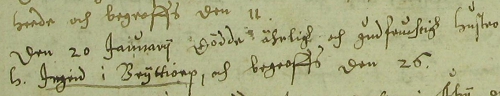 heede och begroffs den 11.
Den 20 January dödde ährligh och gudfruchtigh hustro
h. Ingerd i Bryttiorp, och begroffs den 26.